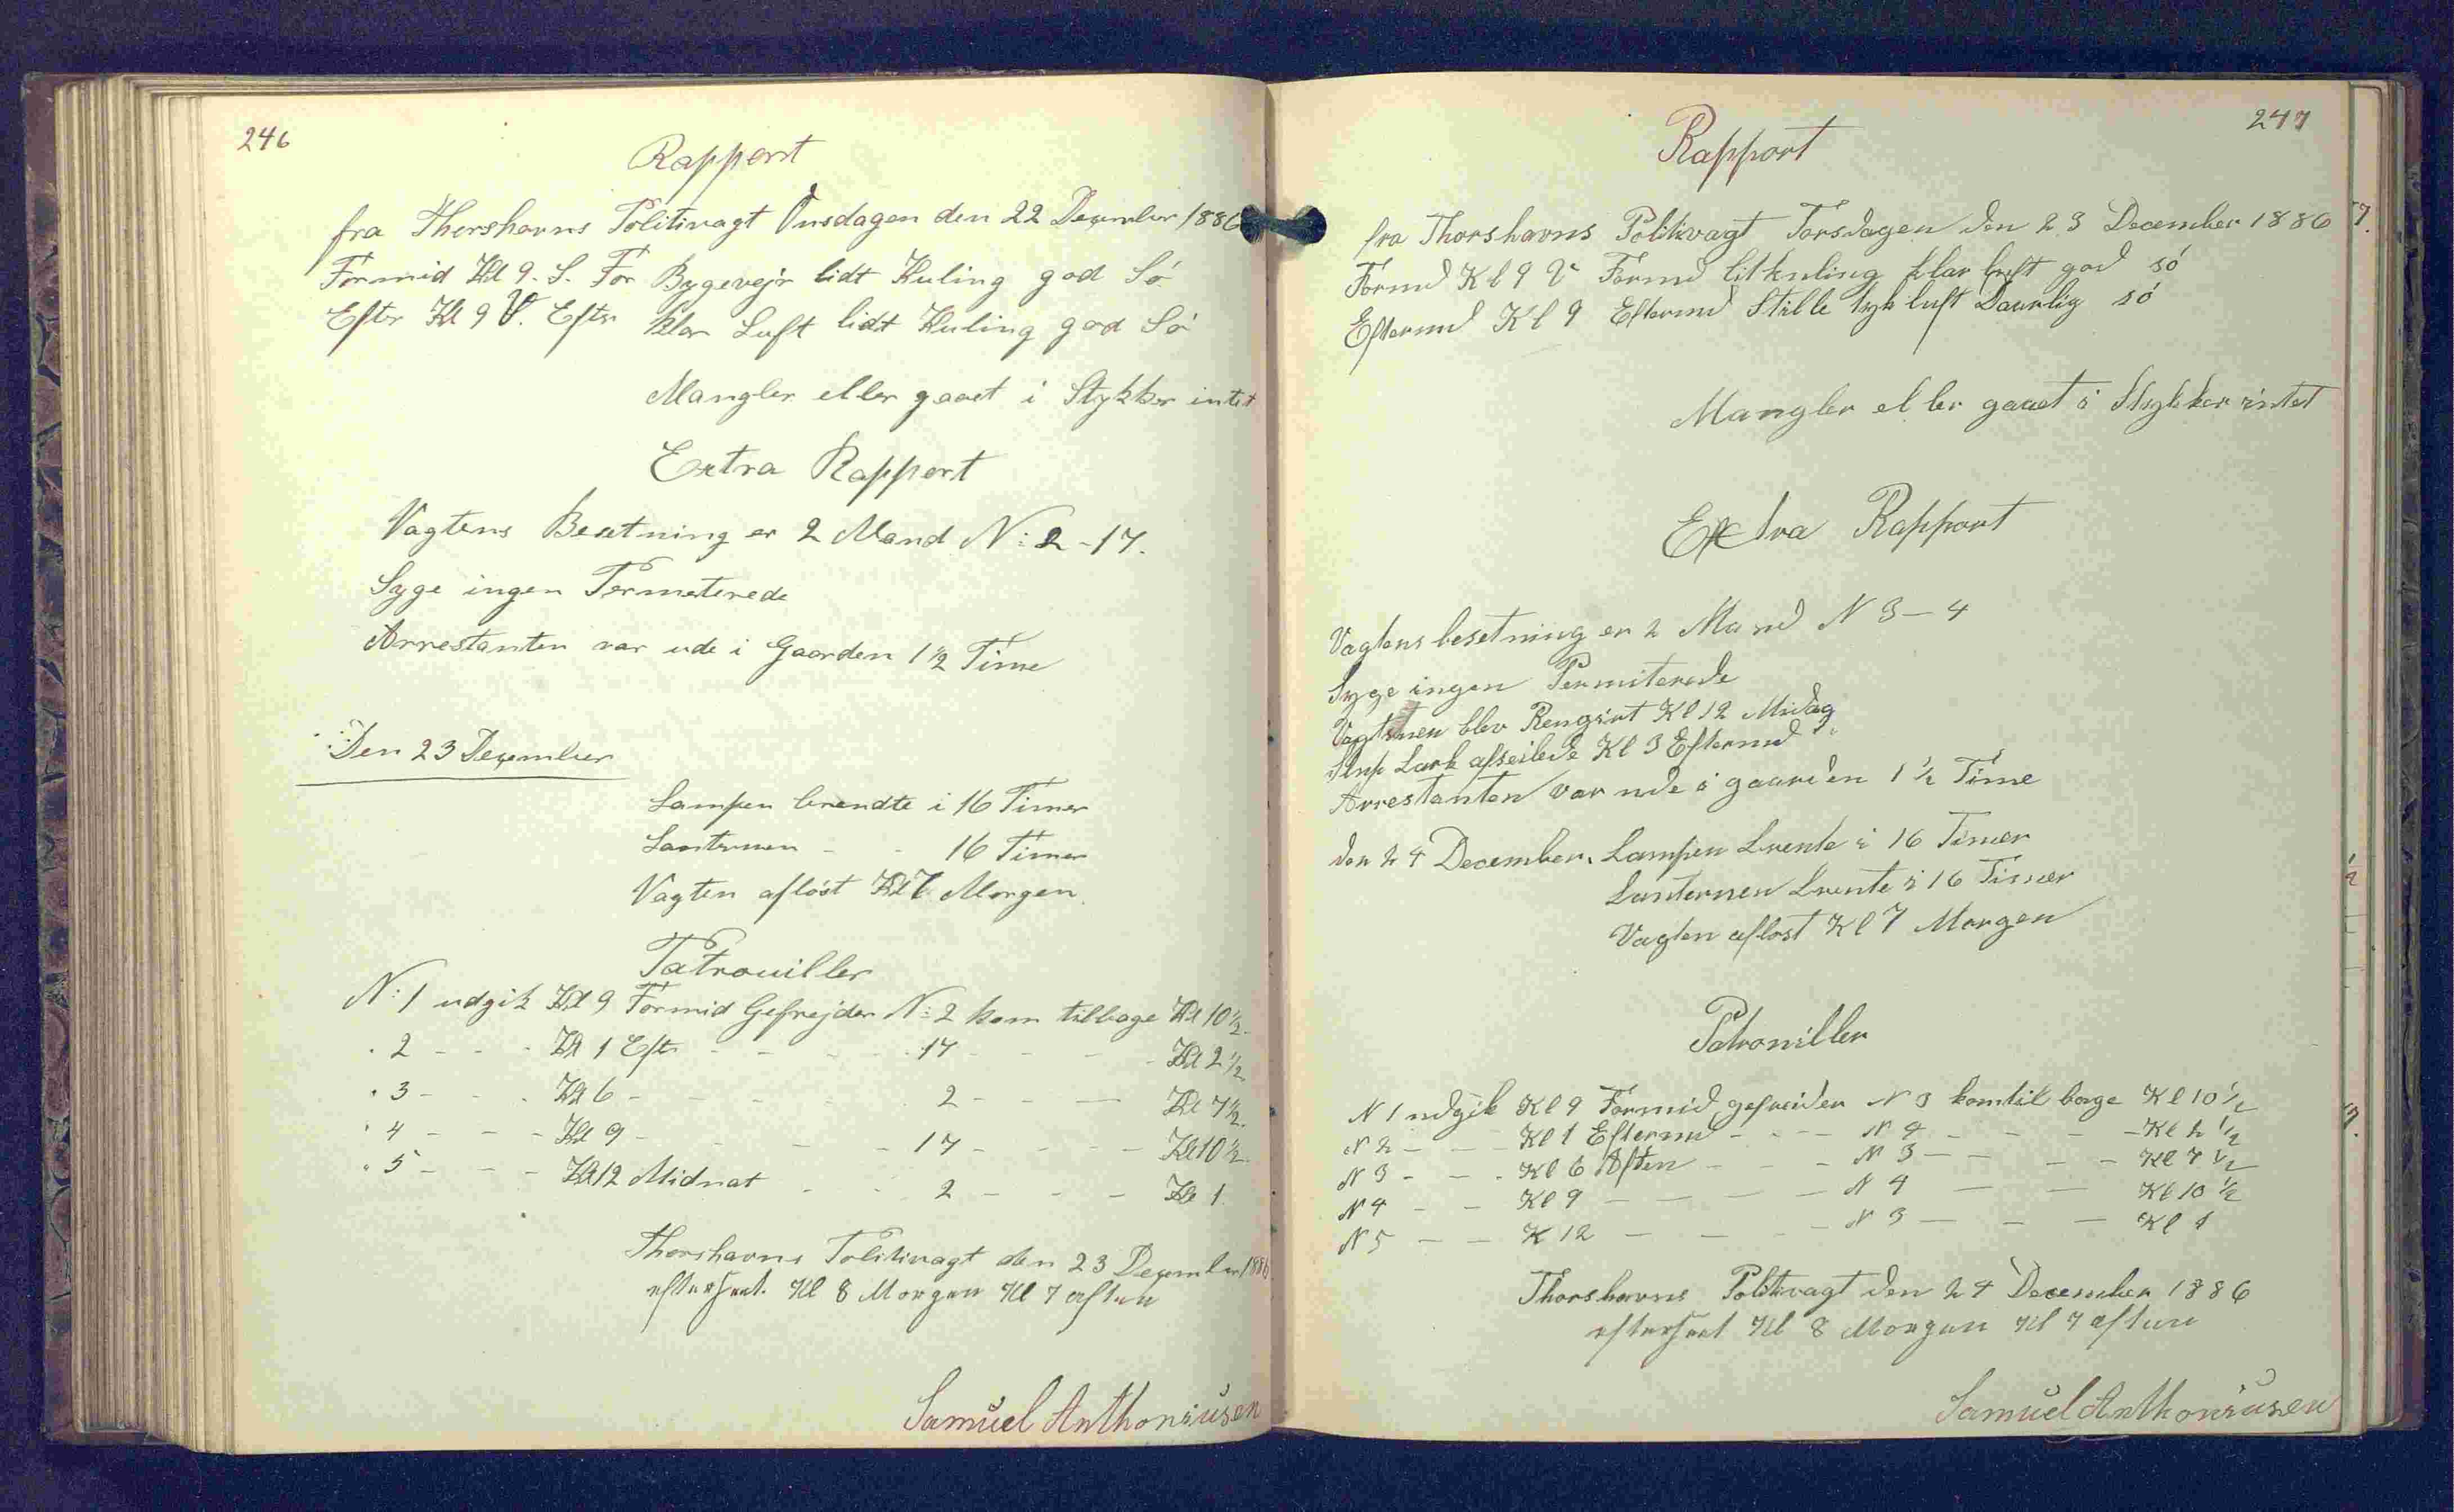 246
Rapport
fra Thorshavns Politivagt Onsdagen den 22 December 1886
Formid Kl 9. S. For Bygevejr lidt Kuling god Sö
Efter Kl 9 V. Efter klar Luft lidt Kuling god Sö
Mangler eller gaaet i Stykker intet
Extra Rapport
Vagtens Besetning er 2 Mand N: 2-17.
Syge ingen Permeterede
Arrestanten var ude i Gaarden 1 1/2 Time
Den 23 December
Lampen brendte i 16 Timer
Lanternen - - 16 Timer
Vagten aflöst Kl 7 Morgen.
Patrouiller
N: 1 udgik Kl 9 Formid Gefrejder N: 2 kom tilbage Kl 10 1/2
" 2 - - - Kl 1 Eft - - - - 17 - - - - Kl 2 1/2
" 3 - - - Kl 6 - - - - 2 - - - Kl 7 1/2
" 4 - - - Kl 9 - - - - 17 - - - - Kl 10 1/2
" 5 - - - Kl 12 Midnat - - 2 - - - Kl 1
Thorshavns Politivagt den 23 December 1886
efterseet. Kl 8 Morgen Kl 7 aften
Samuel Anthoniusen
247
Rapport
fra Thorshavns Politivagt Torsdagen den 23 December 1886
Formd Kl 9 V Formd litkuling klar luft god sö
Eftermd Kl 9 Eftermd Stille tyk luft Daarlig sö
Mangler eller gaaet i Stykker intet
Extra Rapport
Vagtens besetning er 2 Mand N 3 - 4
Syge ingen Permiterede
blev Rengiört Kl 12 Midag
Slup Lark afseilede Kl 3 Eftermd
Arrestanten var ude i gaarden 1 1/2 Time
den 24 December. Lampen brente i 16 Timer
Lanternen brente i 16 Timer
Vagten aflöst Kl 7 Morgen
Patrouiller
N 1 udgik Kl 9 Formid gefreider N 3 kom tilbage Kl 10 1/2
N 2 - - - Kl 1 Eftermd - - - N 4 - - - - Kl 2 1/2
N 3 - - - Kl 6 Aften - - - N 3 - - - - Kl 7 1/2
N 4 - - Kl 9 - - - - N 4 - - Kl 10 1/2
N 5 - - K 12 - - - - N 3 - - - Kl 1
Thorshavns Politivagt den 24 December 1886
efterseet Kl 8 Morgen Kl 7 aften
Samuel Anthoniusen